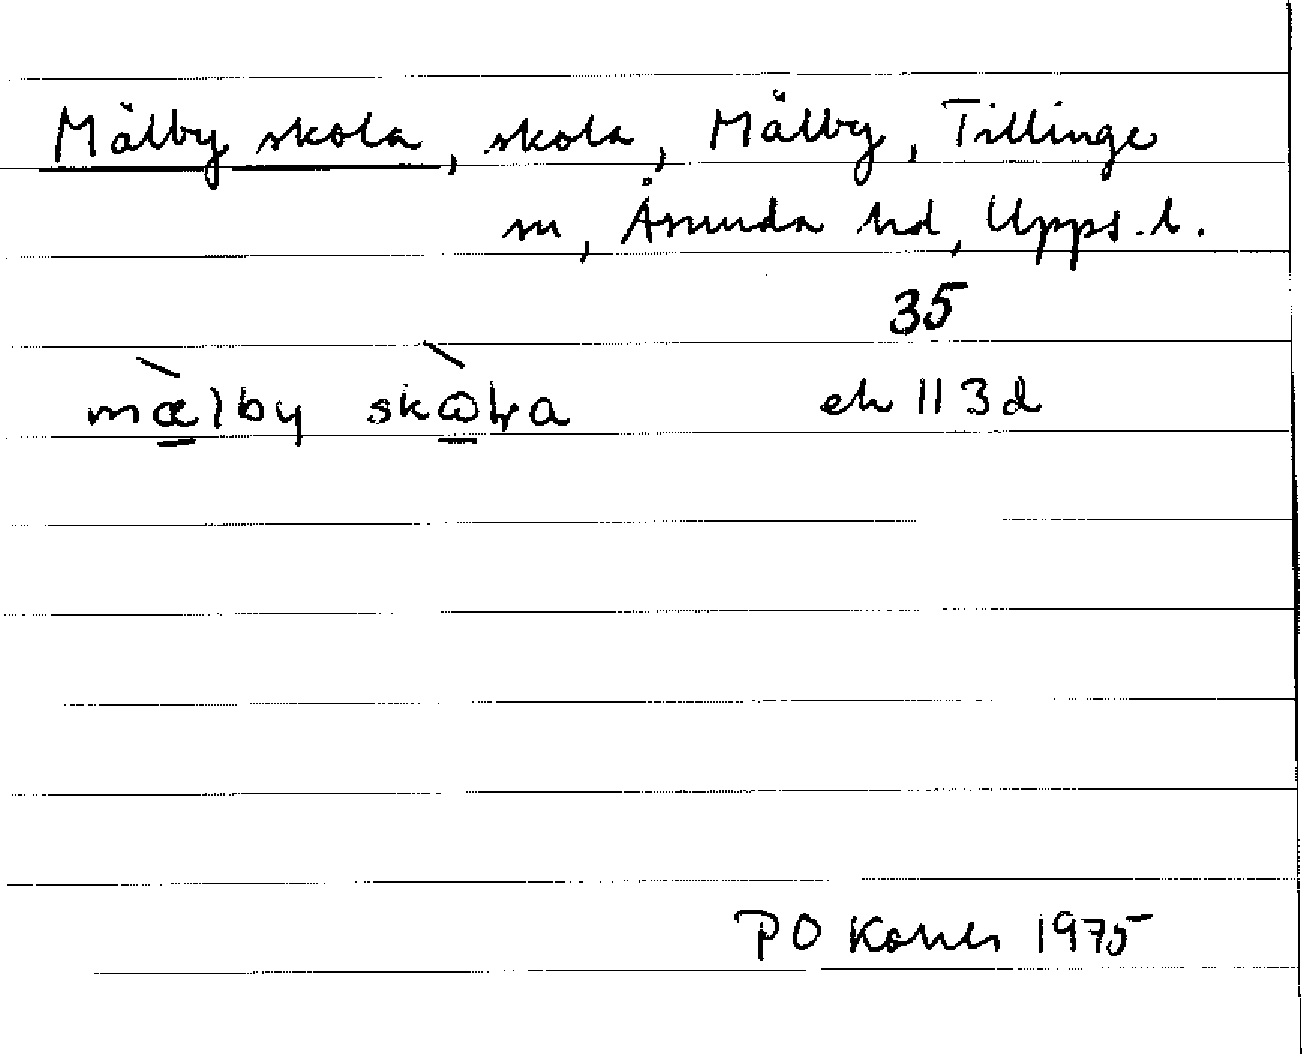 Mälby skola, skola, Mälby, Tillinge
sn, Åsunda hd, Upps. l.
35
mæ̀lby skɷ̀ɽa ek 11 3d
PO 1975